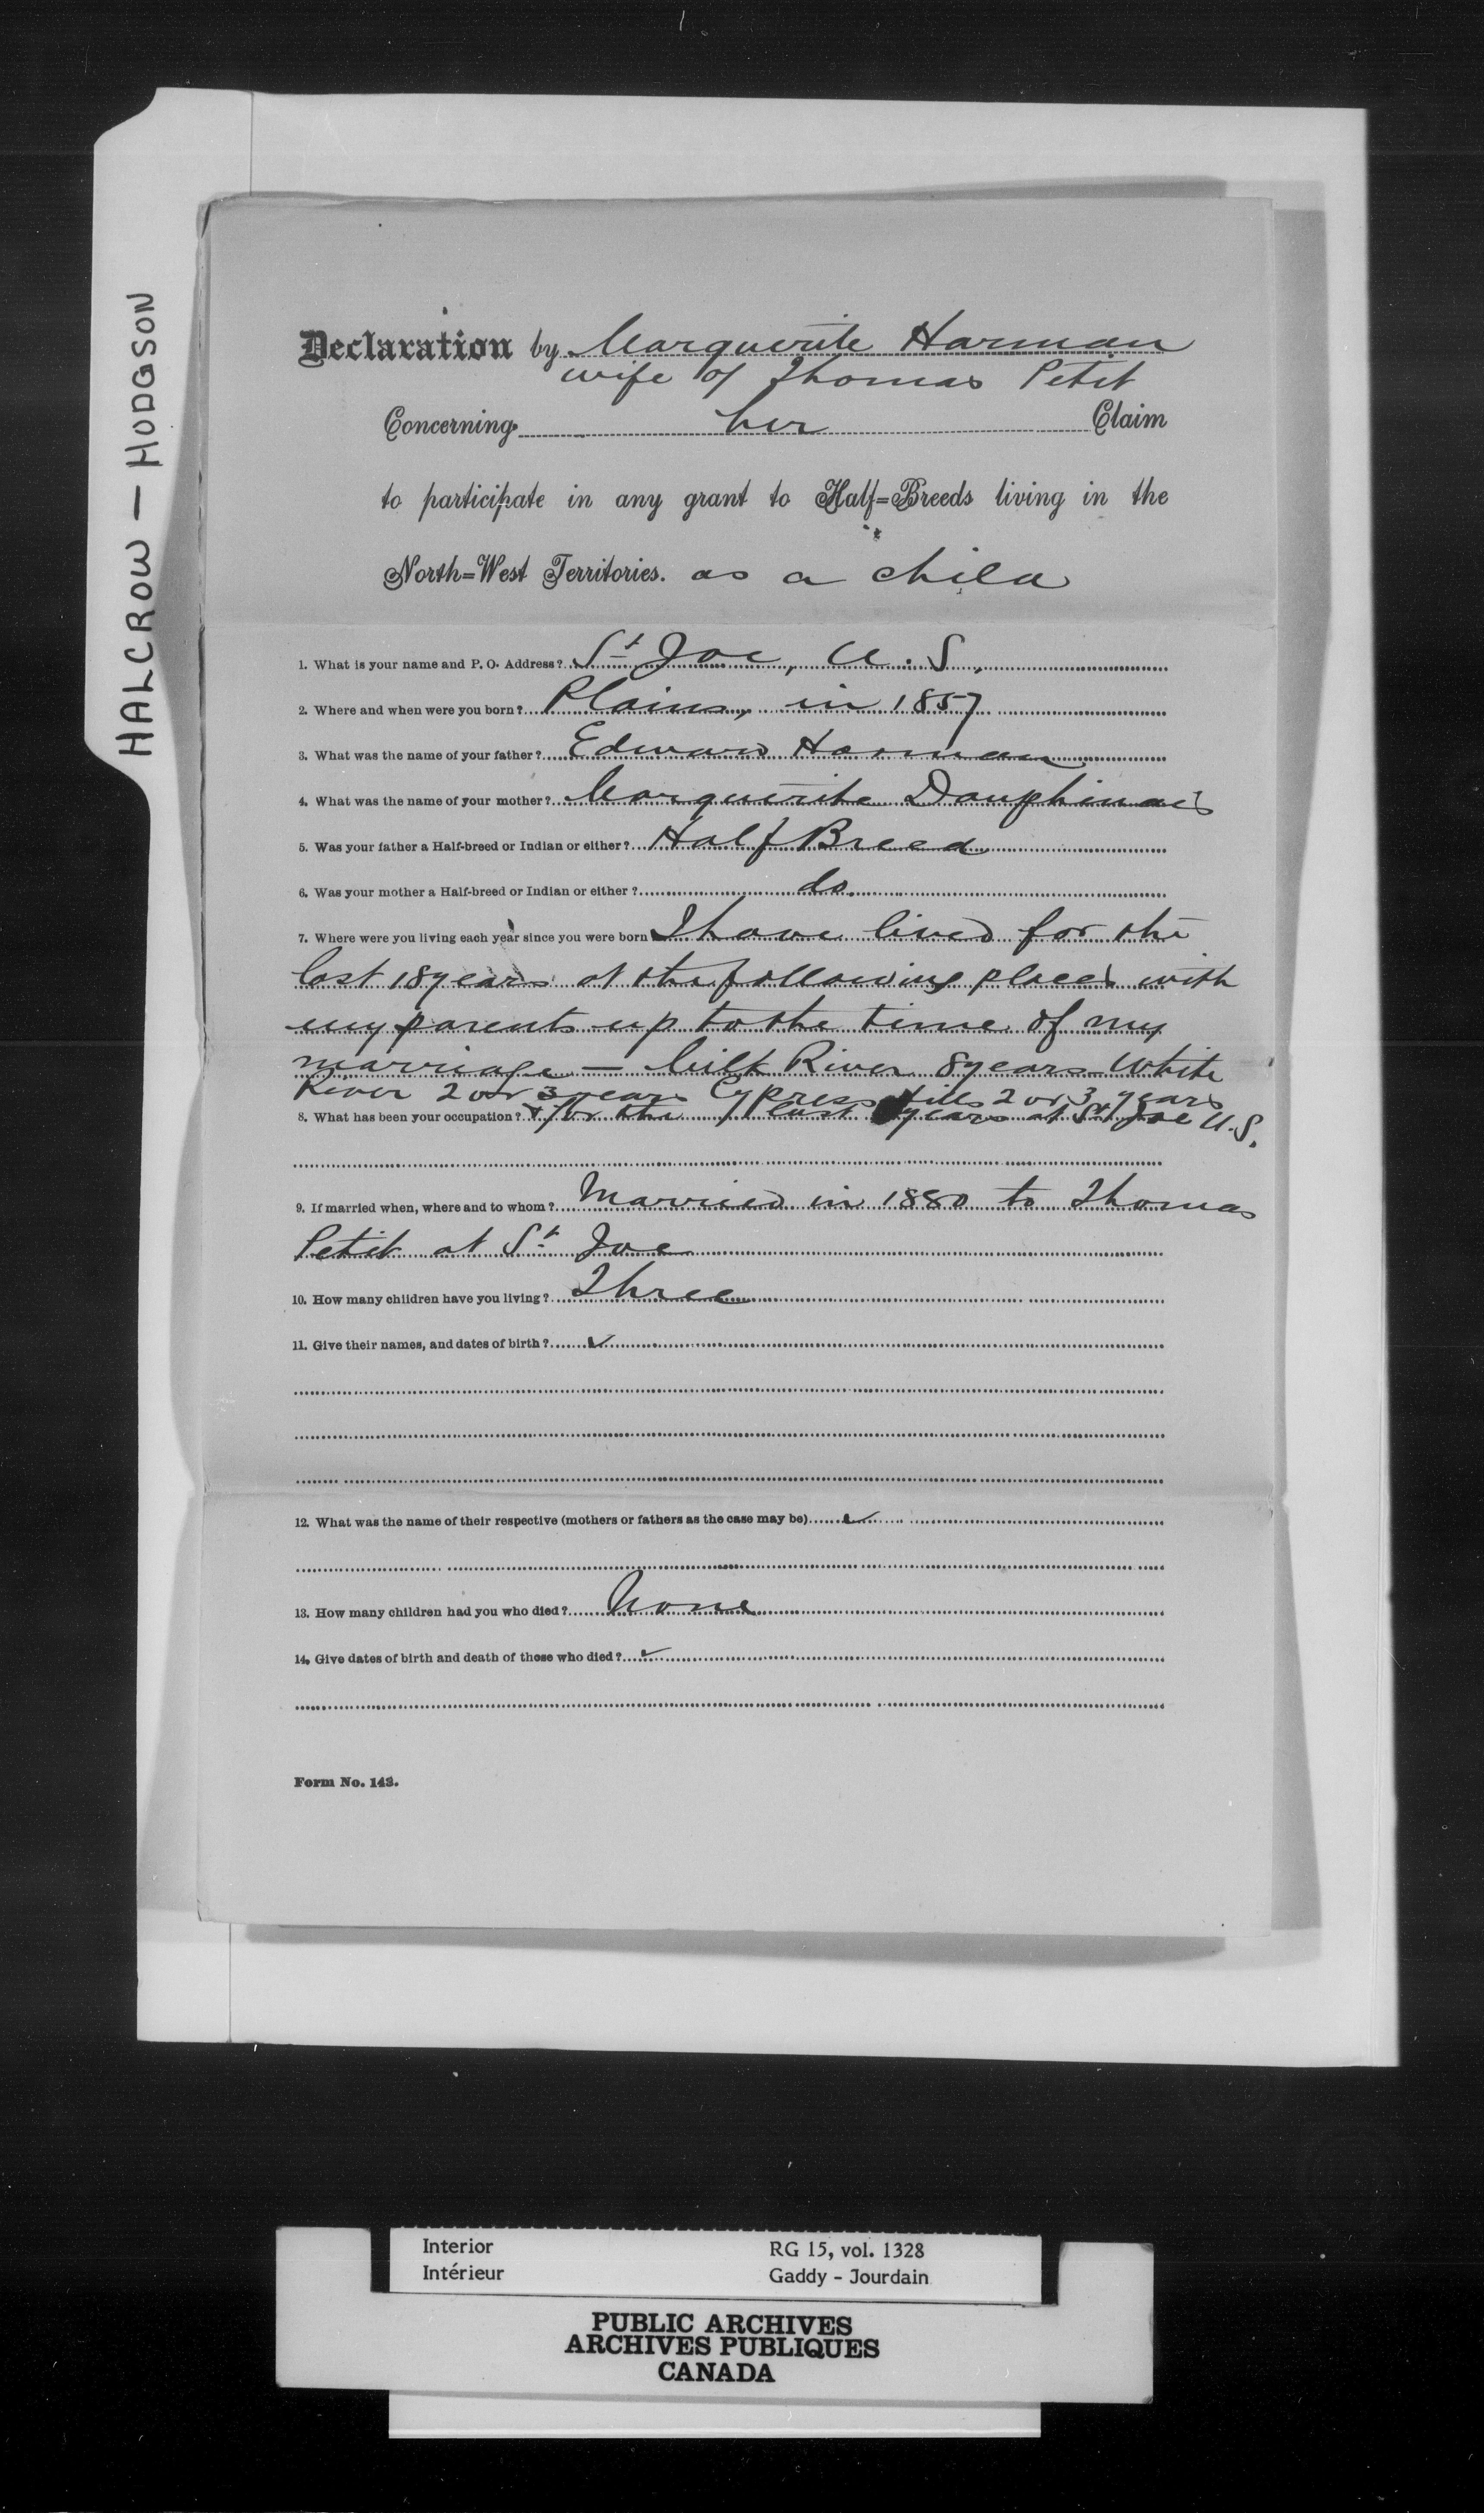 HALCROW — HODGSON
Declaration by Marguerite Harman
wife of Thomas Petit
Concerning her Claim
to participate in any grant to Half=Breeds living in the
North=West Territories. as a child
1. What is your name and P. O. Address? St Joe, U. S.,
2. Where and when were you born? Plains, in 1857
3. What was the name of your father? Edward Harman
4. What was the name of your mother? Marguerite Dauphinais
5. Was your father a Half-breed or Indian or either? Half Breed
6. Was your mother a Half-breed or Indian or either? do.
7. Where were you living each year since you were born I have lived for the
last 18 years at the following places with
my parents up to the time of my
marriage — Milk River 8 years White
River 2 or 3 years Cypress Hills 2 or 3 years
8. What has been your occupation? & for the last years at St Joe U.S.
9. If married when, where and to whom? Married in 1880 to Thomas
Petit at St Joe
10. How many children have you living? Three
11. Give their names, and dates of birth? ✓
12. What was the name of their respective (mothers or fathers as the case may be) ✓
13. How many children had you who died? None
14. Give dates of birth and death of those who died? ✓
Form No. 143.
Interior RG 15, vol. 1328
Intérieur Gaddy - Jourdain
PUBLIC ARCHIVES
ARCHIVES PUBLIQUES
CANADA